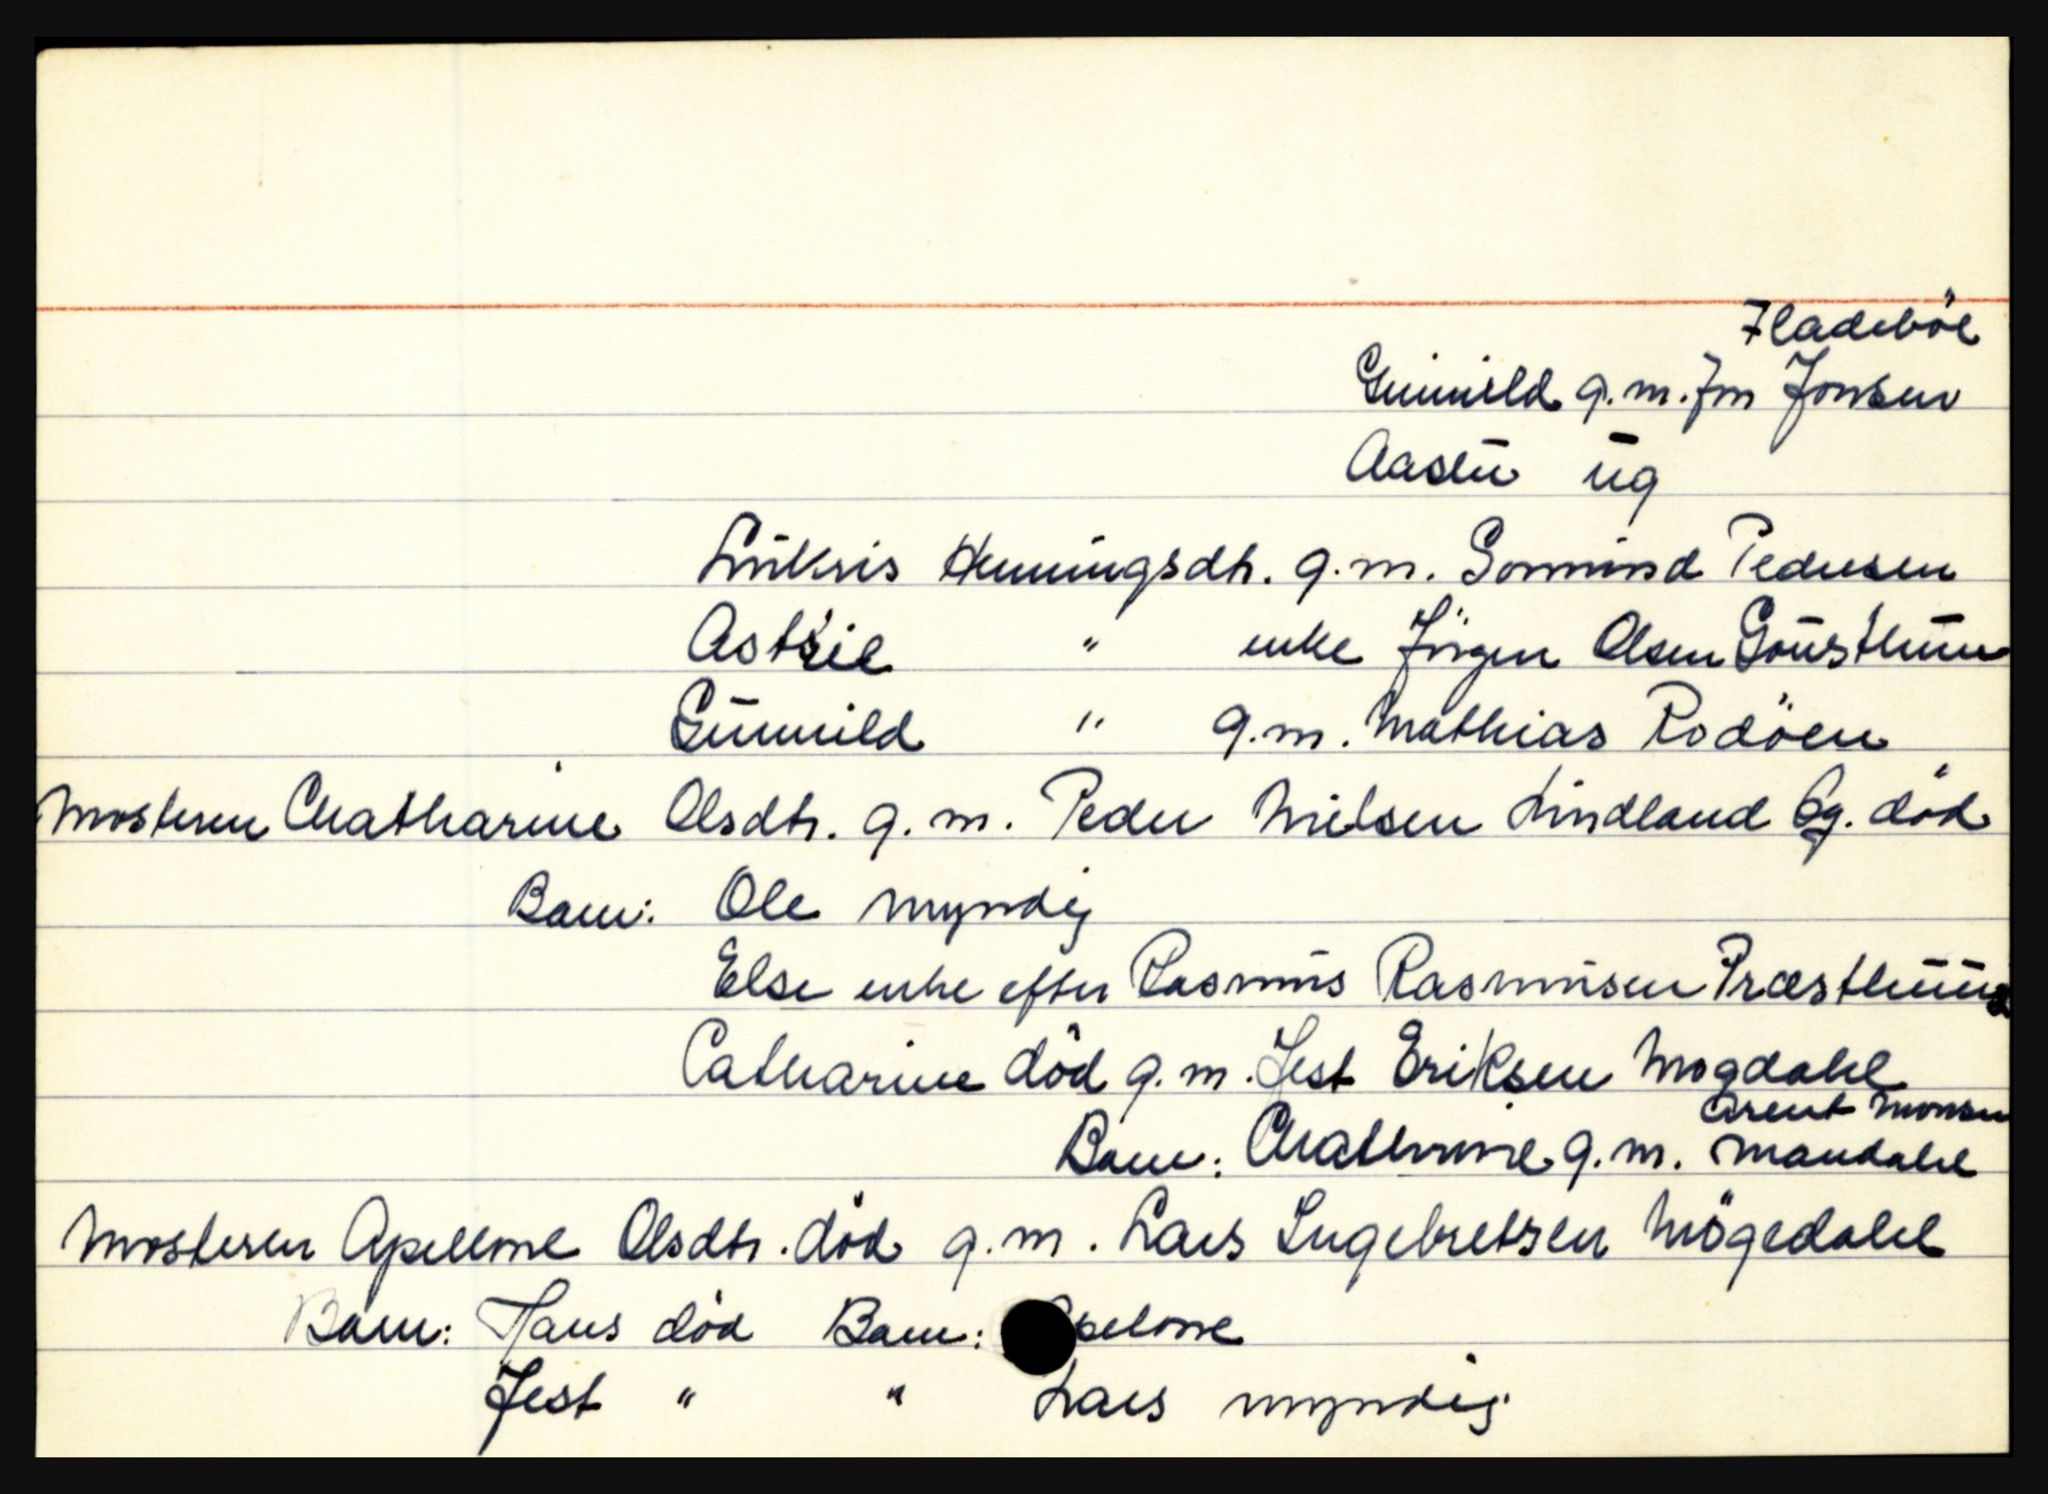 Fladeböe
Gunnild g.m. Jon Jonsen
Aaseu ug
Luksis Henningsdtr. g.m. Gonmund Pedersen
Astrie " enke Jörgen Olsen Gousthuu
Gunnild " g.m. Mathias Rodöen
Mosteren Chatharine Olsdtr. g.m. Peder Nielsen Lindland Bg. död
Barn: Ole myndig
Else enke efter Rasmus Rasmusen Præsthuus
Catharine död g.m. Jest Eriksen Mogdahl
Arent Monsen
Barn: Chathrine g.m. Mandahl
Mosteren Apellone Olsdtr. död g.m. Lars Ingebretsen Mögedahl
Barn: Hans död Barn: Apelone
Jest " " Lars myndig